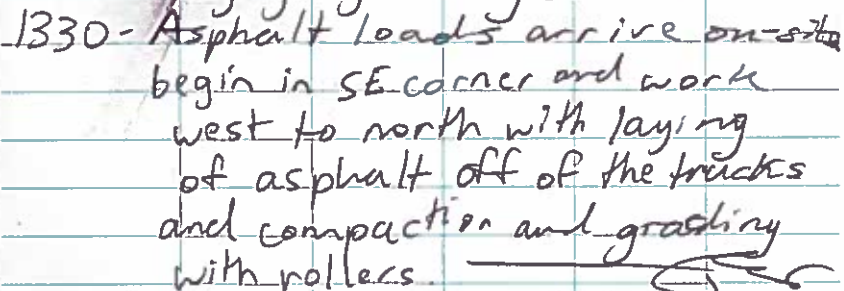 1330 - Asphalt loads arrive on-site
begin in SE corner and work
west to north with laying
of asphalt off of the trucks
and compaction and grading
with rollers.